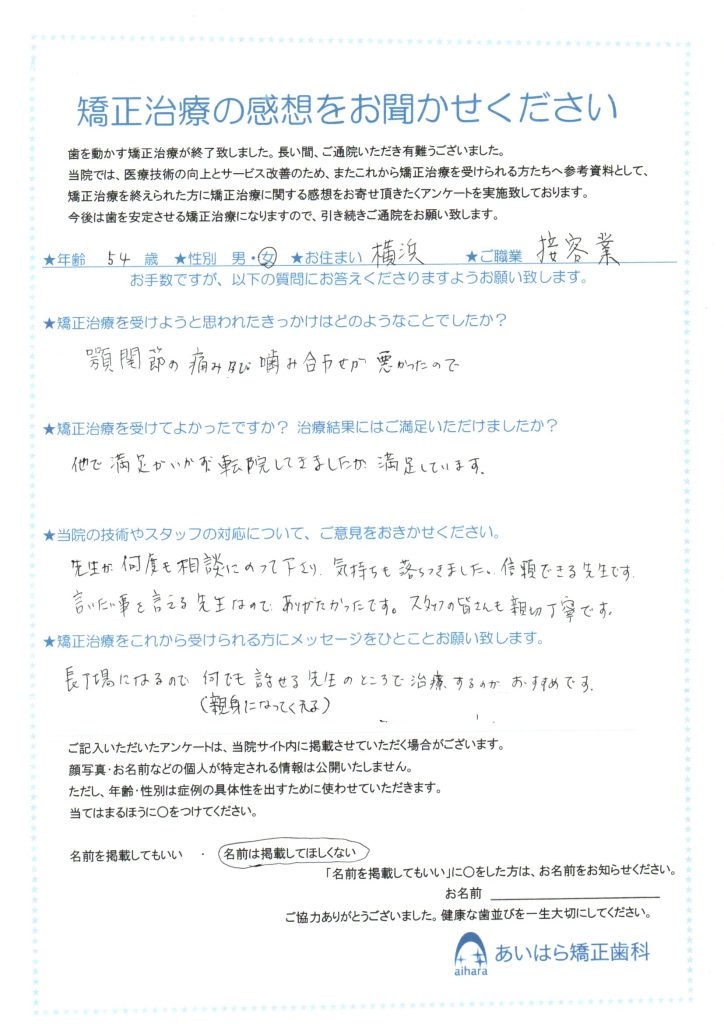 矯正治療の感想をお聞かせください
歯を動かす矯正治療が終了致しました。長い間、ご通院いただき有難うございました。
当院では、医療技術の向上とサービス改善のため、またこれから矯正治療を受けられる方たちへ参考資料として、
矯正治療を終えられた方に矯正治療に関する感想をお寄せ頂きたくアンケートを実施致しております。
今後は歯を安定させる矯正治療になりますので、引き続きご通院をお願い致します。
★年齢 54 歳 ★性別 男・女 ★お住まい 横浜 ★ご職業 接客業
お手数ですが、以下の質問にお答えくださりますようお願い致します。
★矯正治療を受けようと思われたきっかけはどのようなことでしたか？
顎関節の痛み及び噛み合わせが悪かったので
★矯正治療を受けてよかったですか？ 治療結果にはご満足いただけましたか？
他で満足がいかず転院してきましたが満足しています。
★当院の技術やスタッフの対応について、ご意見をおきかせください。
先生が何度も相談にのって下さり、気持ちも落ちつきました。信頼できる先生です。
言いたい事を言える先生なのでありがたかったです。スタッフの皆さんも親切丁寧です。
★矯正治療をこれから受けられる方にメッセージをひとことお願い致します。
長丁場になるので何でも話せる先生のところで治療するのがおすすめです。
（親身になってくれる）
ご記入いただいたアンケートは、当院サイト内に掲載させていただく場合がございます。
顔写真・お名前などの個人が特定される情報は公開いたしません。
ただし、年齢・性別は症例の具体性を出すために使わせていただきます。
当てはまるほうに○をつけてください。
名前を掲載してもいい ・ 名前は掲載してほしくない
「名前を掲載してもいい」に○をした方は、お名前をお知らせください。
お名前
ご協力ありがとうございました。健康な歯並びを一生大切にしてください。
aihara あいはら矯正歯科